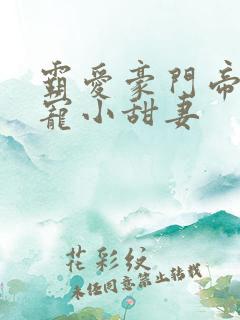 霸爱豪門帝
寵小甜妻
花彩纹
未经同意禁止转载